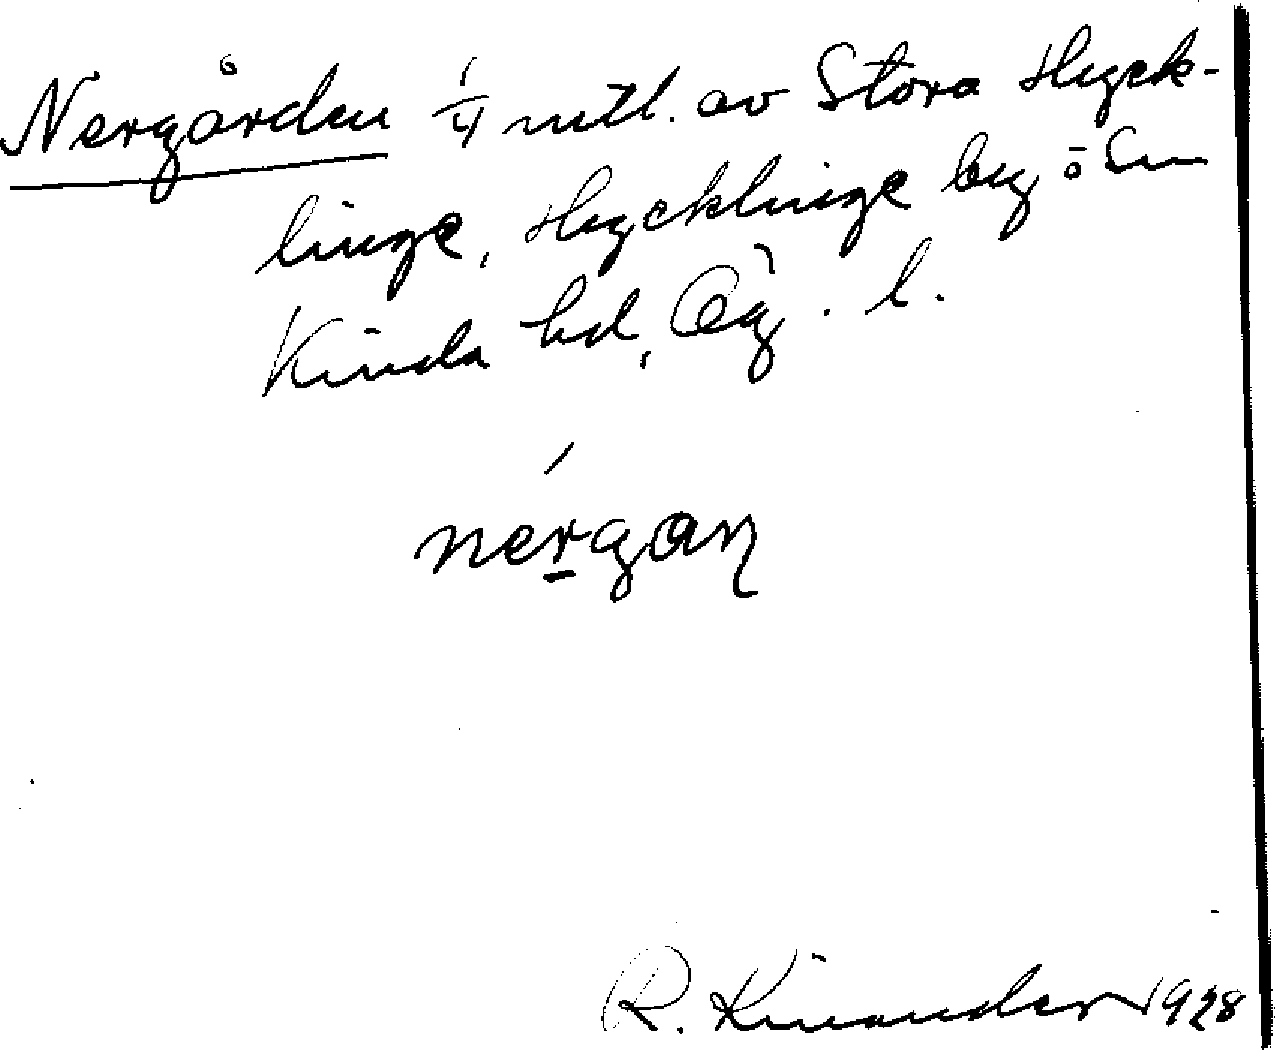 Nergården 1/4 mtl. av Stora Hyck-
linge, Hycklinge by o sn
Kinda hd, Ög. l.
nérgaɳ
R. Kinander 1928